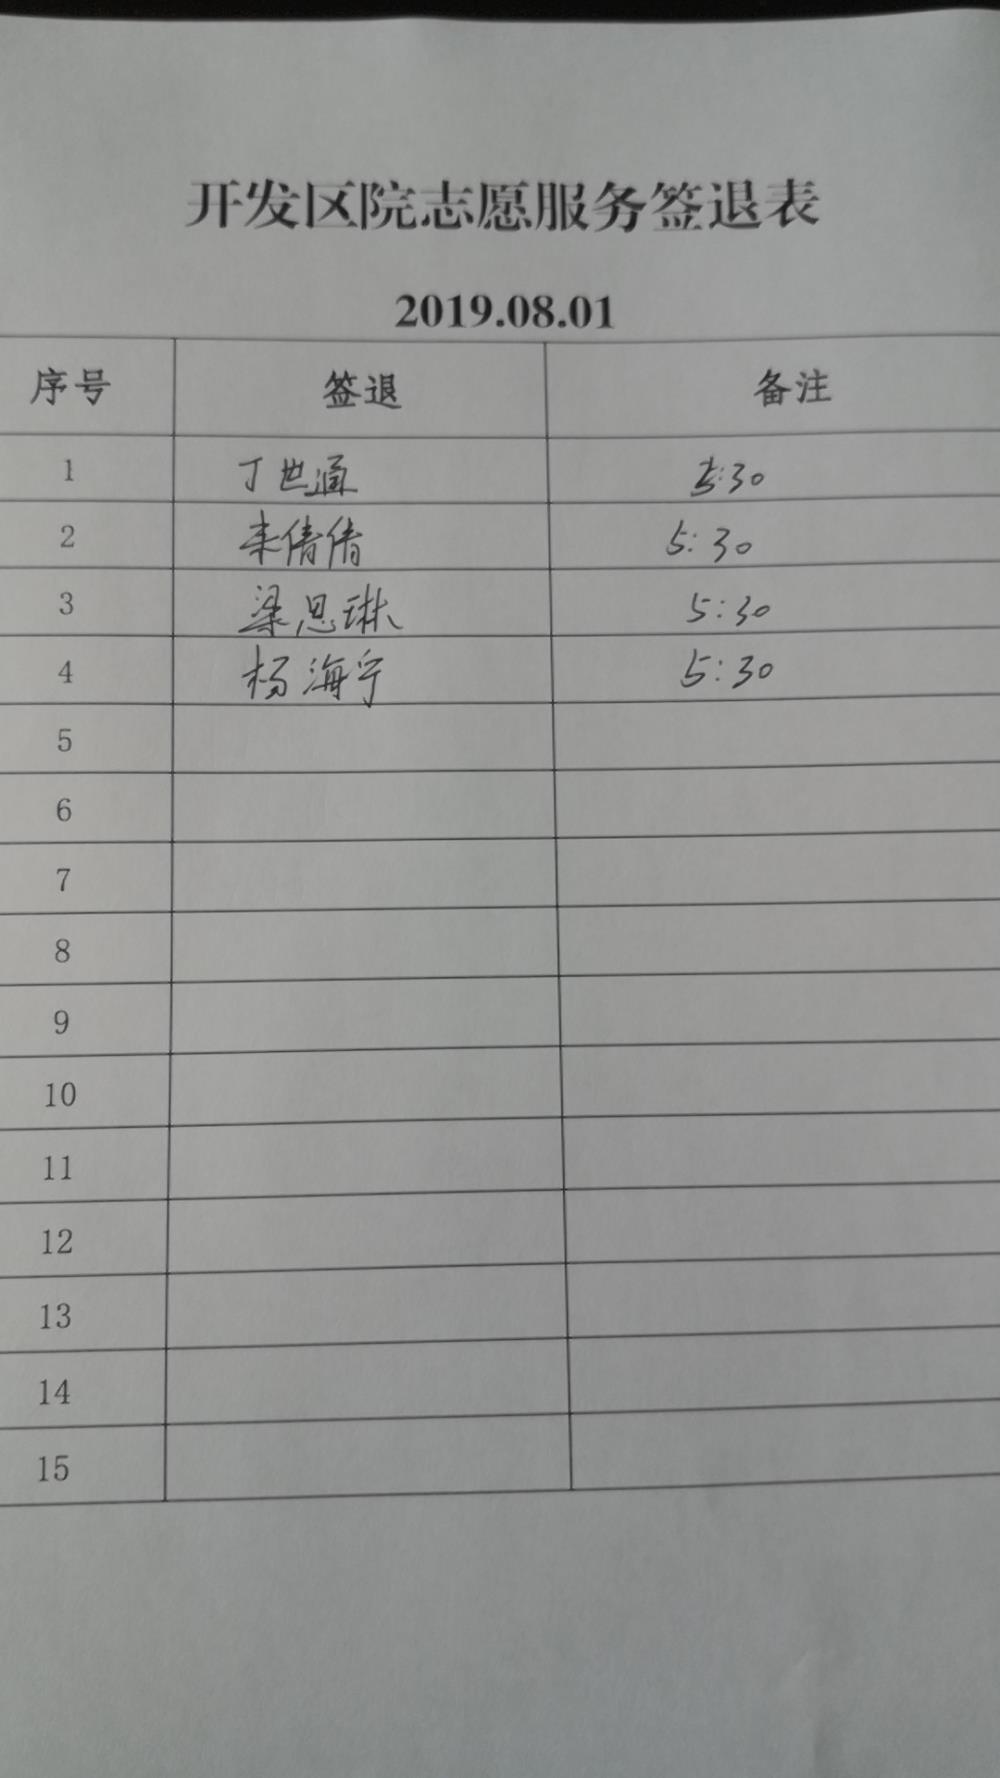 开发区院志愿服务签退表
2019.08.01
序号 签退 备注
1 丁世涵 5:30
2 来倩倩 5:30
3 梁思琳 5:30
4 杨海宁 5:30
5
6
7
8
9
10
11
12
13
14
15